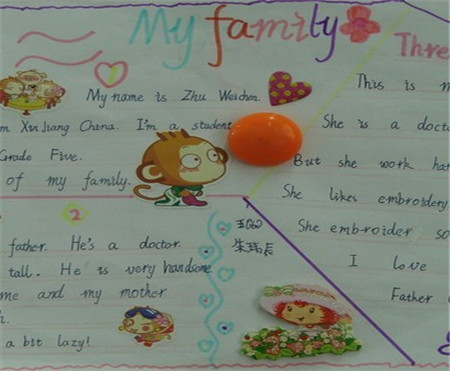 My family
Thre
1
My name is Zhu Weichen.
m XinJiang China. I'm a student
Grade Five.
of my family.
2
father. He's a doctor.
tall. He is very handsome
me and my mother
a bit lazy!
This is m
She is a docto
But she work har
She likes embroidery
She embroider so
I love
Father